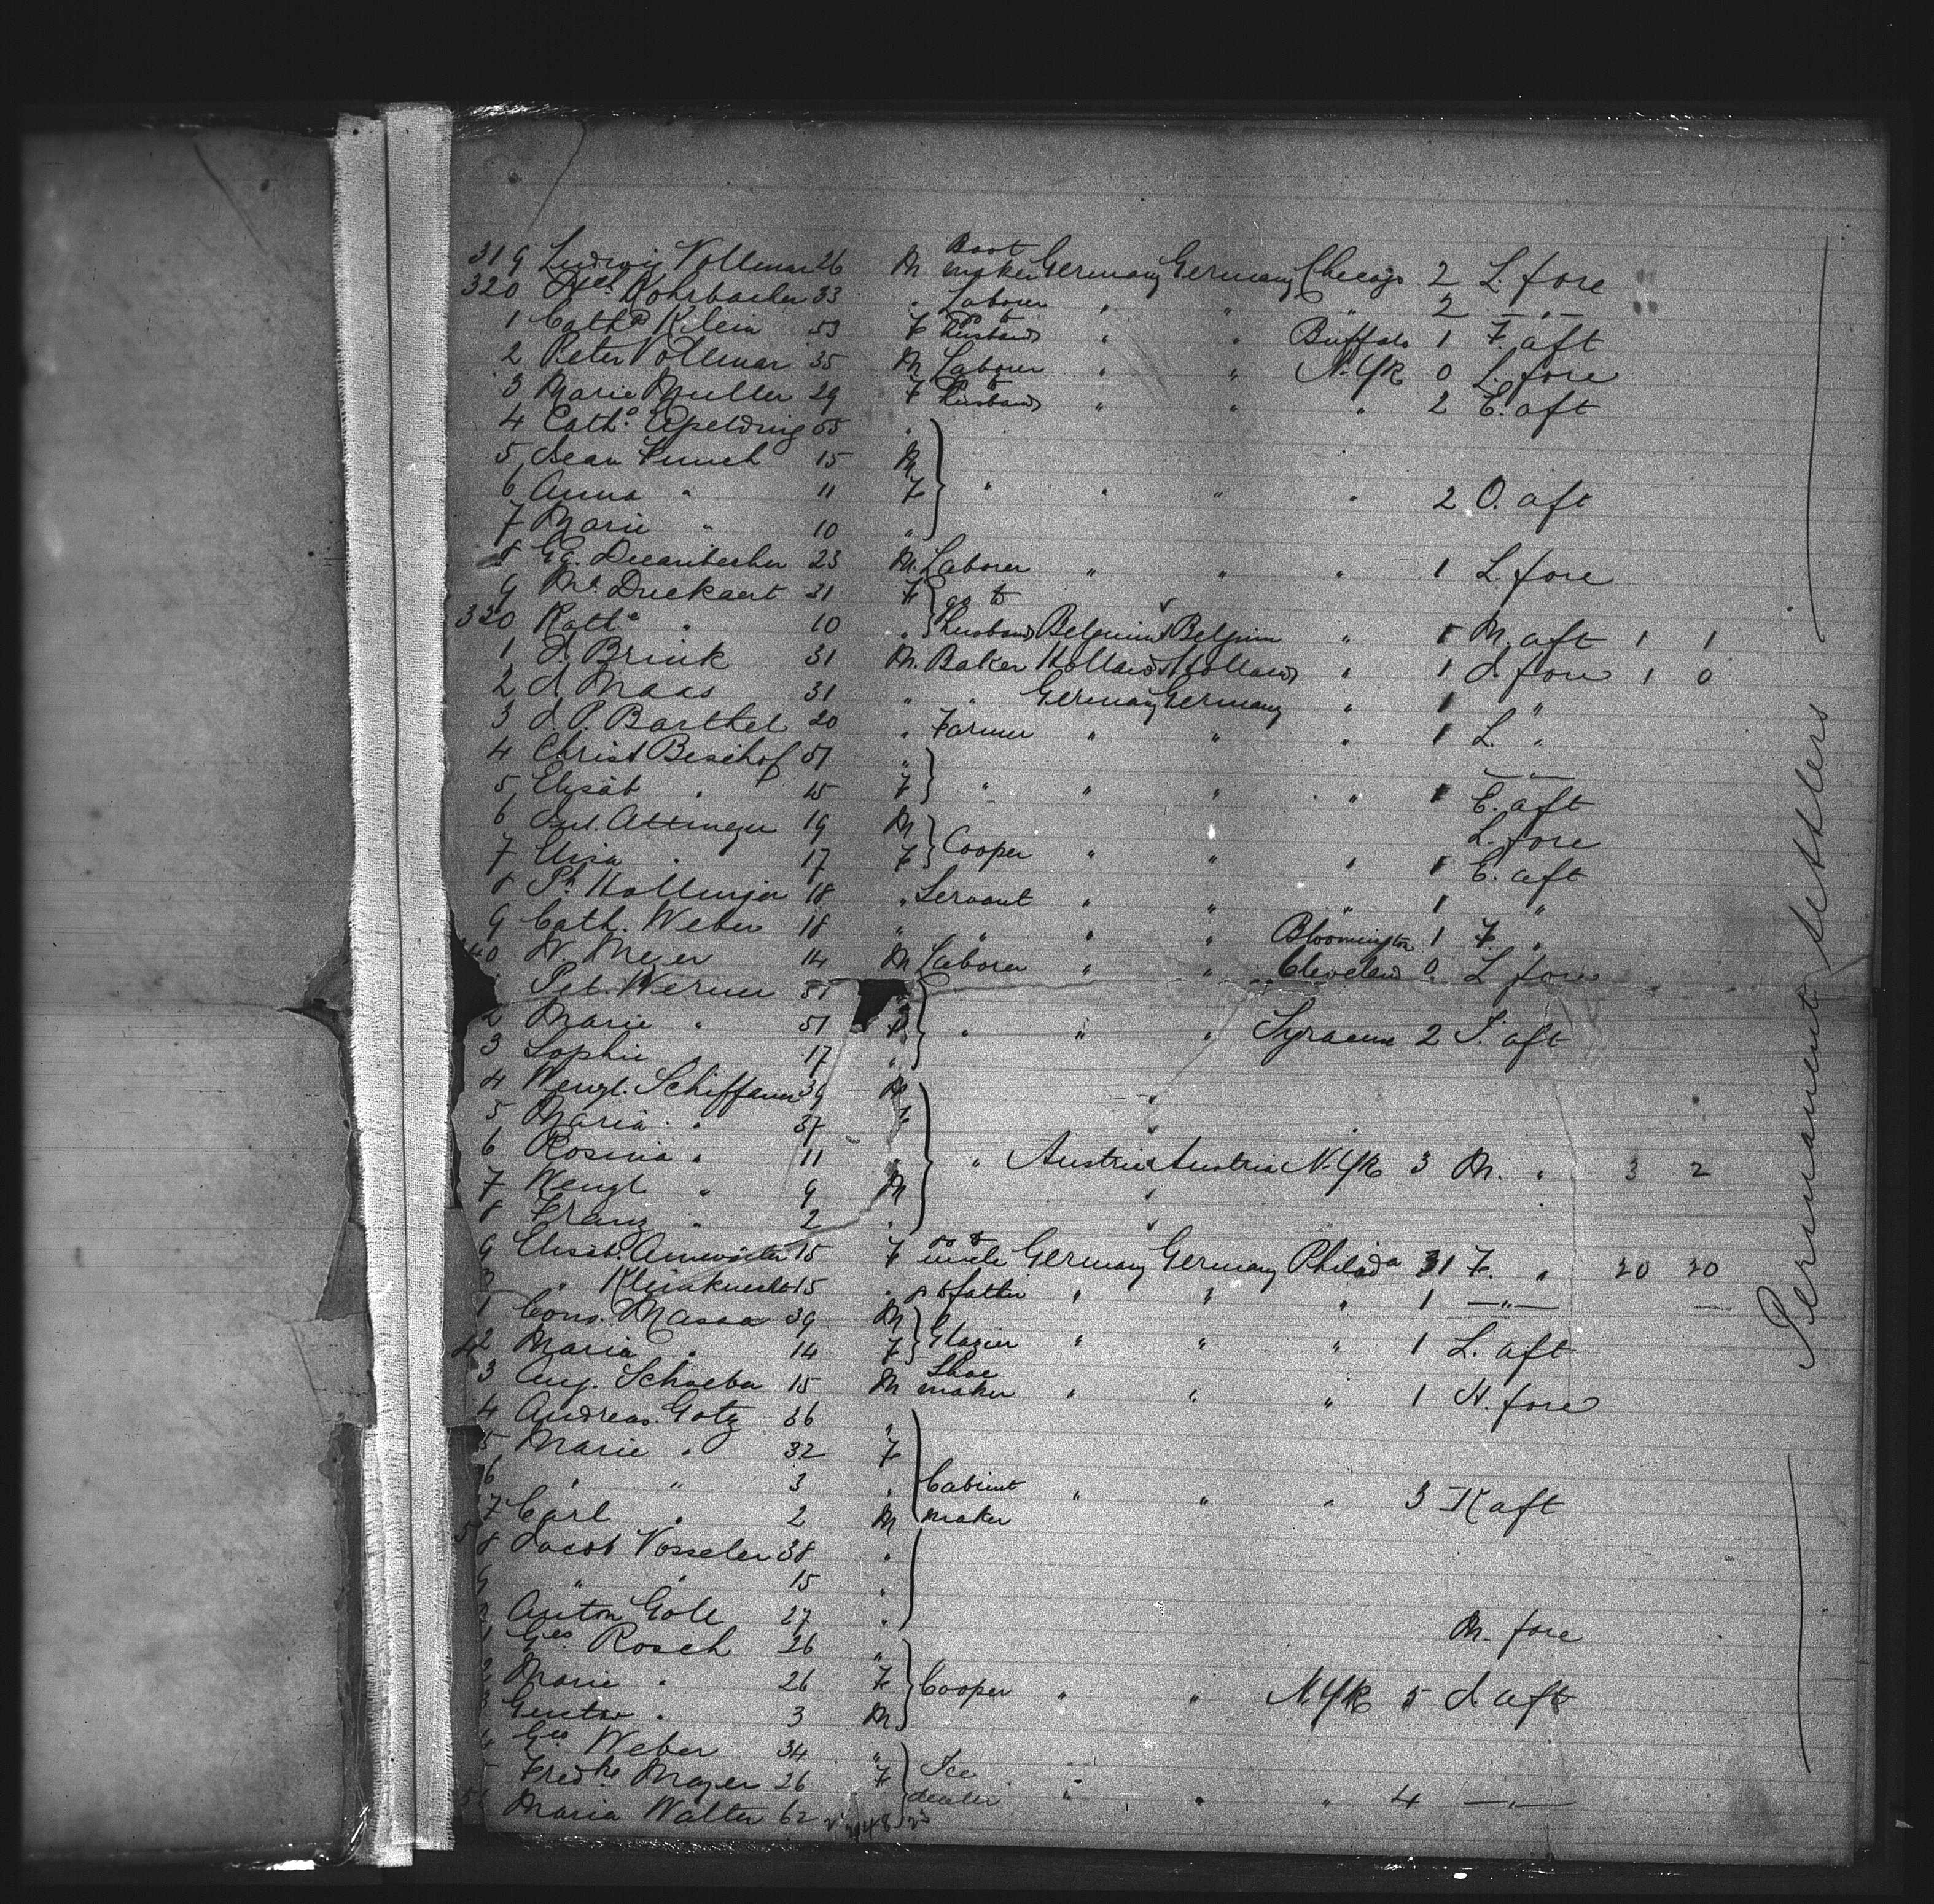 319 Ludwig Vollmar 26 M Boot maker Germany Germany Chicago 2 L. fore
320 Kohrbacher 33 " Laborer " " " 2 — " —
1 Cathe Klein 53 F to Husband " " Buffalo 1 F. aft
2 Peter Vollmar 35 M Laborer " " N.Yk 0 L. fore
3 Marie Muller 29 F to husband " " " 2 E. aft
4 Cath. Apelding 55 "
5 Jean Funck 15 M
6 Anna " 11 F " " " " 2 O. aft
7 Marie " 10 "
8 Gg. 23 M. Laborer " " " 1 L. fore
9 Duckaert 31 F go to
330 Kathe " 10 " husband Belgium Belgium " 1 M. aft 1 1
1 J. Brink 31 M. Baker Holland Holland " 1 J. fore 1 0
2 J. Maas 31 " " Germany Germany " 1 "
3 J. P. Barthel 20 " Farmer " " " 1 L. "
4 Christ Besihof 51 " — " —
5 Elisab " 15 F " " " " 1 E. aft
6 Jul. Attinger 19 M L. fore
7 Elisa " 17 F Cooper " " " 1 E. aft
8 Ph. Hollinger 18 " Servant " " " 1 "
9 Cath. Weber 18 " " " " Bloomington 1 F. "
40 N. Meyer 14 M Laborer " " Cleveland 0 L fore
Pet. Werner 51
2 Marie " 51 F " " " Syracuse 2 S. aft
3 Sophie " 17 "
4 Wenzl. Schiffauer 39 M
5 Maria " 37 F
6 Rosina " 11 " " Austria Austria N.Yk 3 M. " 3 2
7 Wenzl " 9 M
8 Franz " 2 "
9 Elisab. 15 F to uncle Germany Germany Philada 1 F. " 20 20
" Kleinknecht 15 " to father " " " 1 — " —
1 Cons. Massa 39 M
2 Maria " 14 F Glazier " " " 1 L. aft
3 Aug. Schaeber 15 M Shoe maker " " " 1 H. fore
4 Andreas Gotz 36 "
5 Marie " 32 F
6 " " 3 " Cabinet " " " 3 K aft
7 Carl " 2 M maker
8 Jacob Vosseler 38 "
" " 15 "
Anton Goll 27 " M. fore
1 Geo. Rosch 26 "
2 Marie " 26 F Cooper " " N.Yk 5 J. aft
3 Gustav " 3 M
Geo. Weber 34 "
Fredke Mayer 26 F Ice
Maria Walter 62 dealer " " " 4 — " —
Permanent settlers